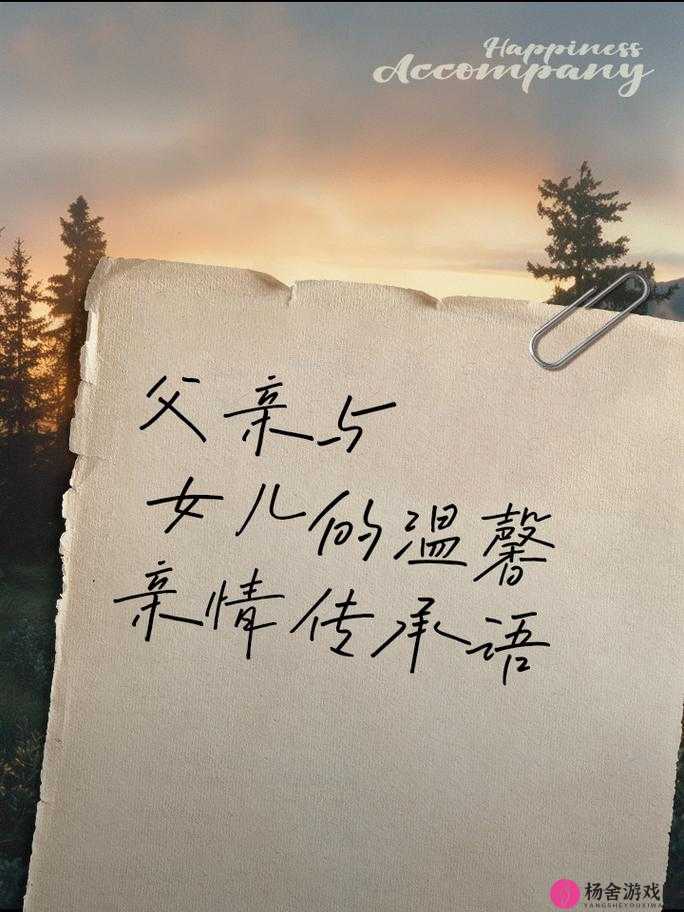 Happiness
Accompany
父亲与
女儿的温馨
亲情传承语
杨舍游戏
YANGSHEYOUXIWA